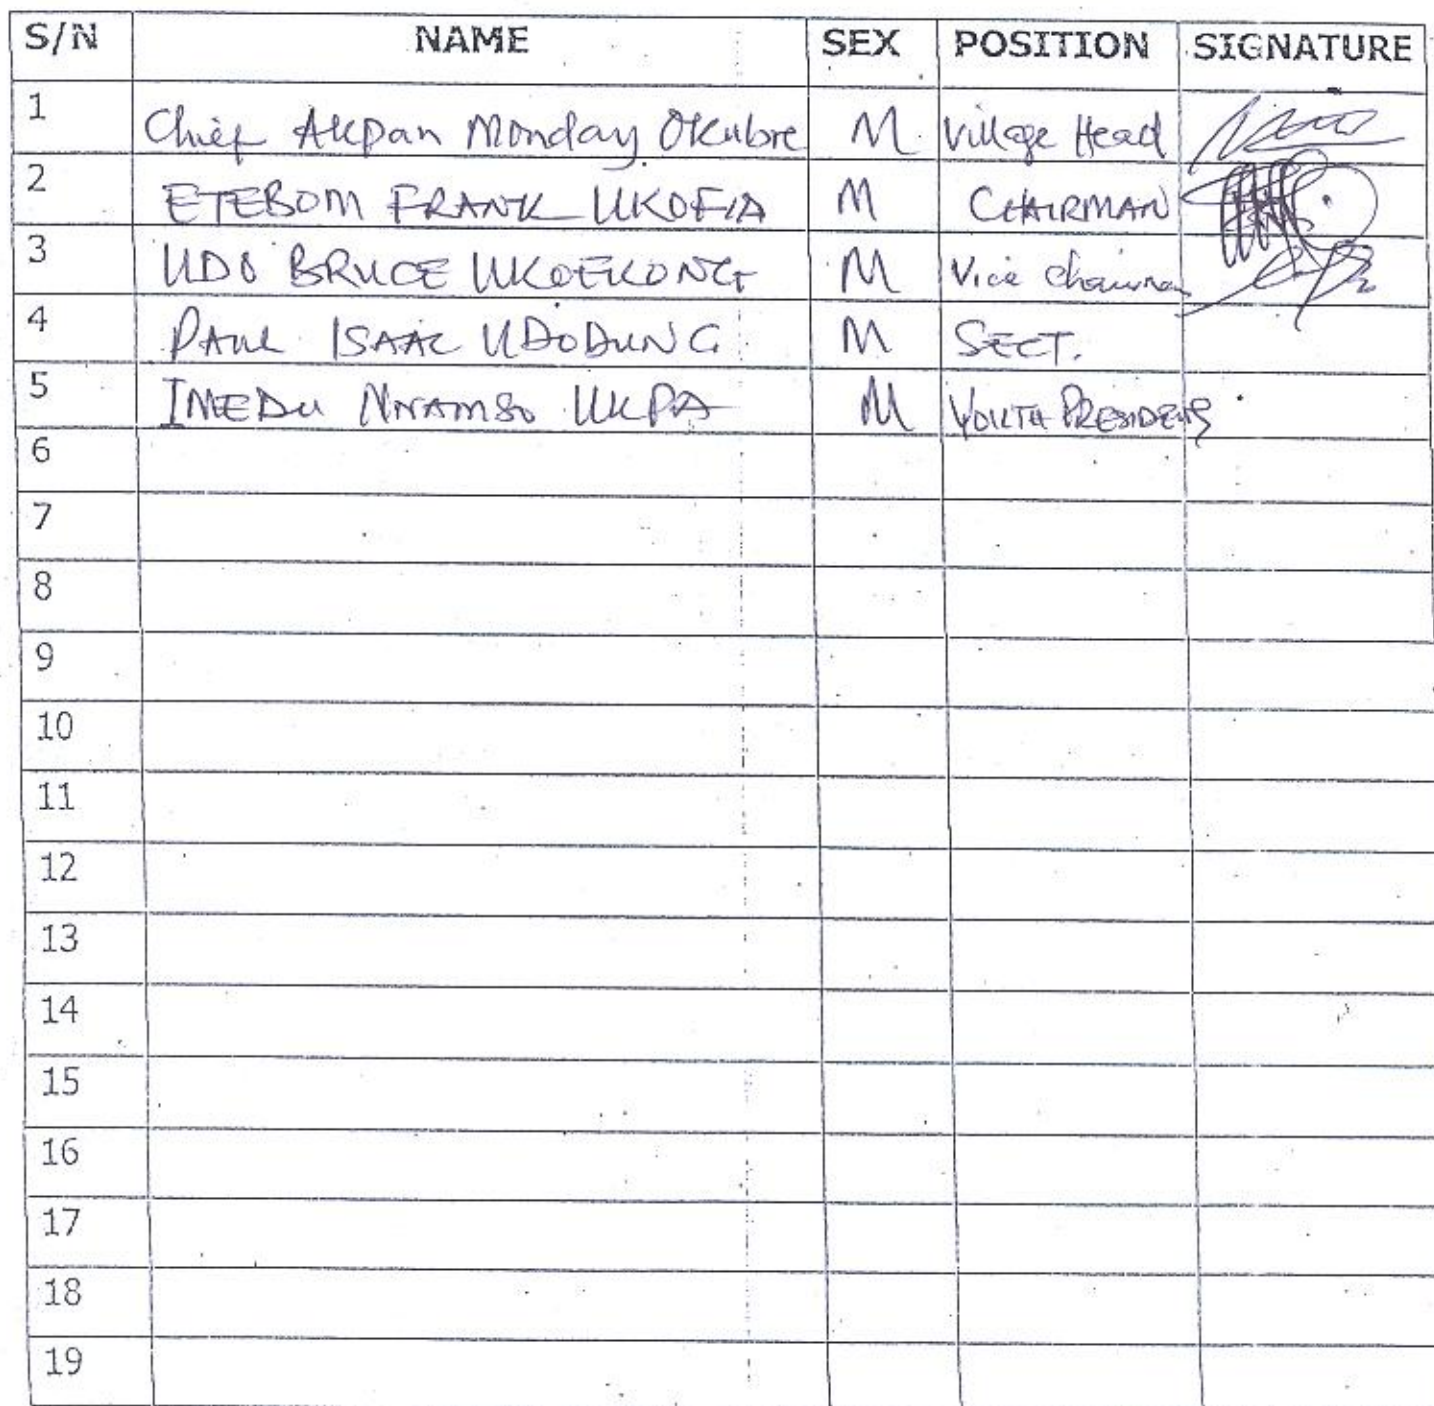 S/N NAME SEX POSITION SIGNATURE
1 Chief Akpan Monday Okubre M Village Head
2 ETEBOM FRANK UKOFIA M CHAIRMAN
3 UDO BRUCE UKOEKONG M Vice Chairman
4 PAUL ISAAC UDODUNG M SECT.
5 IMEDU NNAMSO UKPA M YOUTH PRESIDENT
6
7
8
9
10
11
12
13
14
15
16
17
18
19